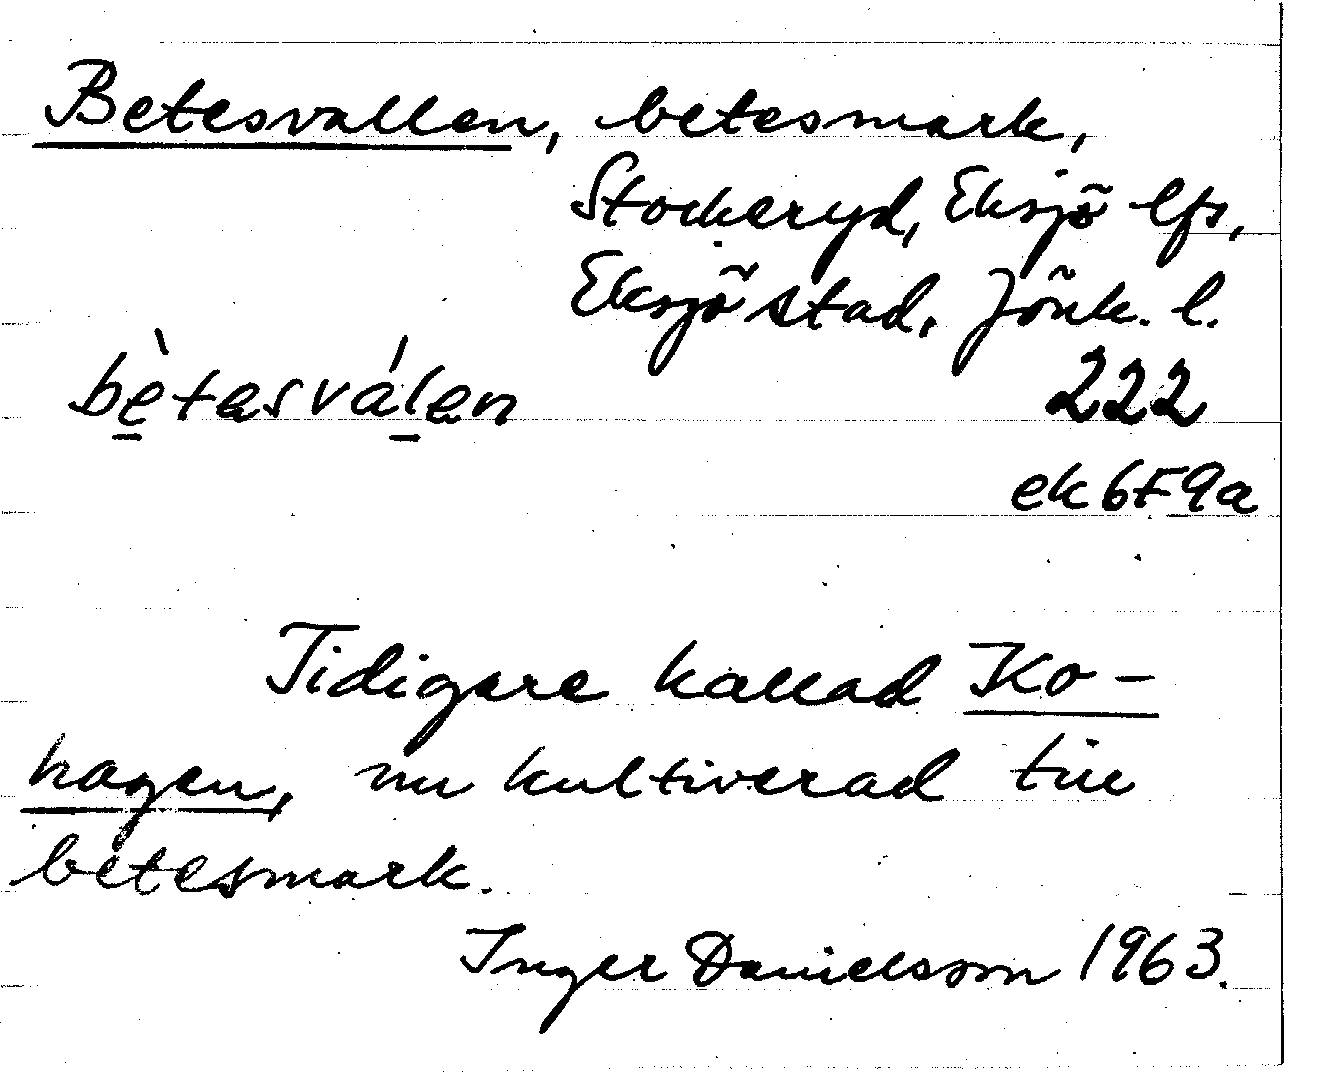 Betesvallen, betesmark,
Stockeryd, Eksjö lfs,
Eksjö stad, Jönk. l.
bè̠tasvál̠en
222
ek 6F9a
Tidigare kallad Ko-
hagen, nu kultiverad till
betesmark.
Inger Danielsson 1963.